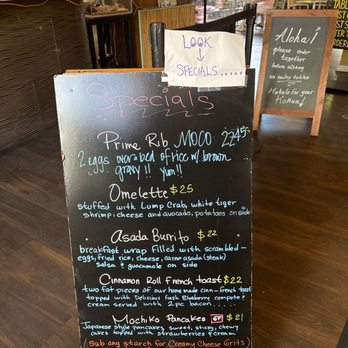 LOOK
SPECIALS.....
Specials
Prime Rib MOCO 22.45
2 eggs over a bed of rice w/ brown
gravy!! yum!!
Omelette $25
stuffed with Lump Crab, white tiger
shrimp, cheese and avocado, potatoes on side
Asada Burrito $22
breakfast wrap filled with scrambled
eggs, fried rice, cheese, carne asada (steak)
salsa & guacamole on side
Cinnamon Roll French toast $22
two fat pieces of our homemade cinn-french toast
topped with Delicious fresh Blueberry compote &
cream served on side
Mochiko Pancakes GF $21
Japanese style pancakes, sweet, sticky, chewy
cakes topped with strawberries & cream
(Sub any starch for Creamy Cheese Grits)
Aloha!
please order
together
before
tables
Mahalo for your